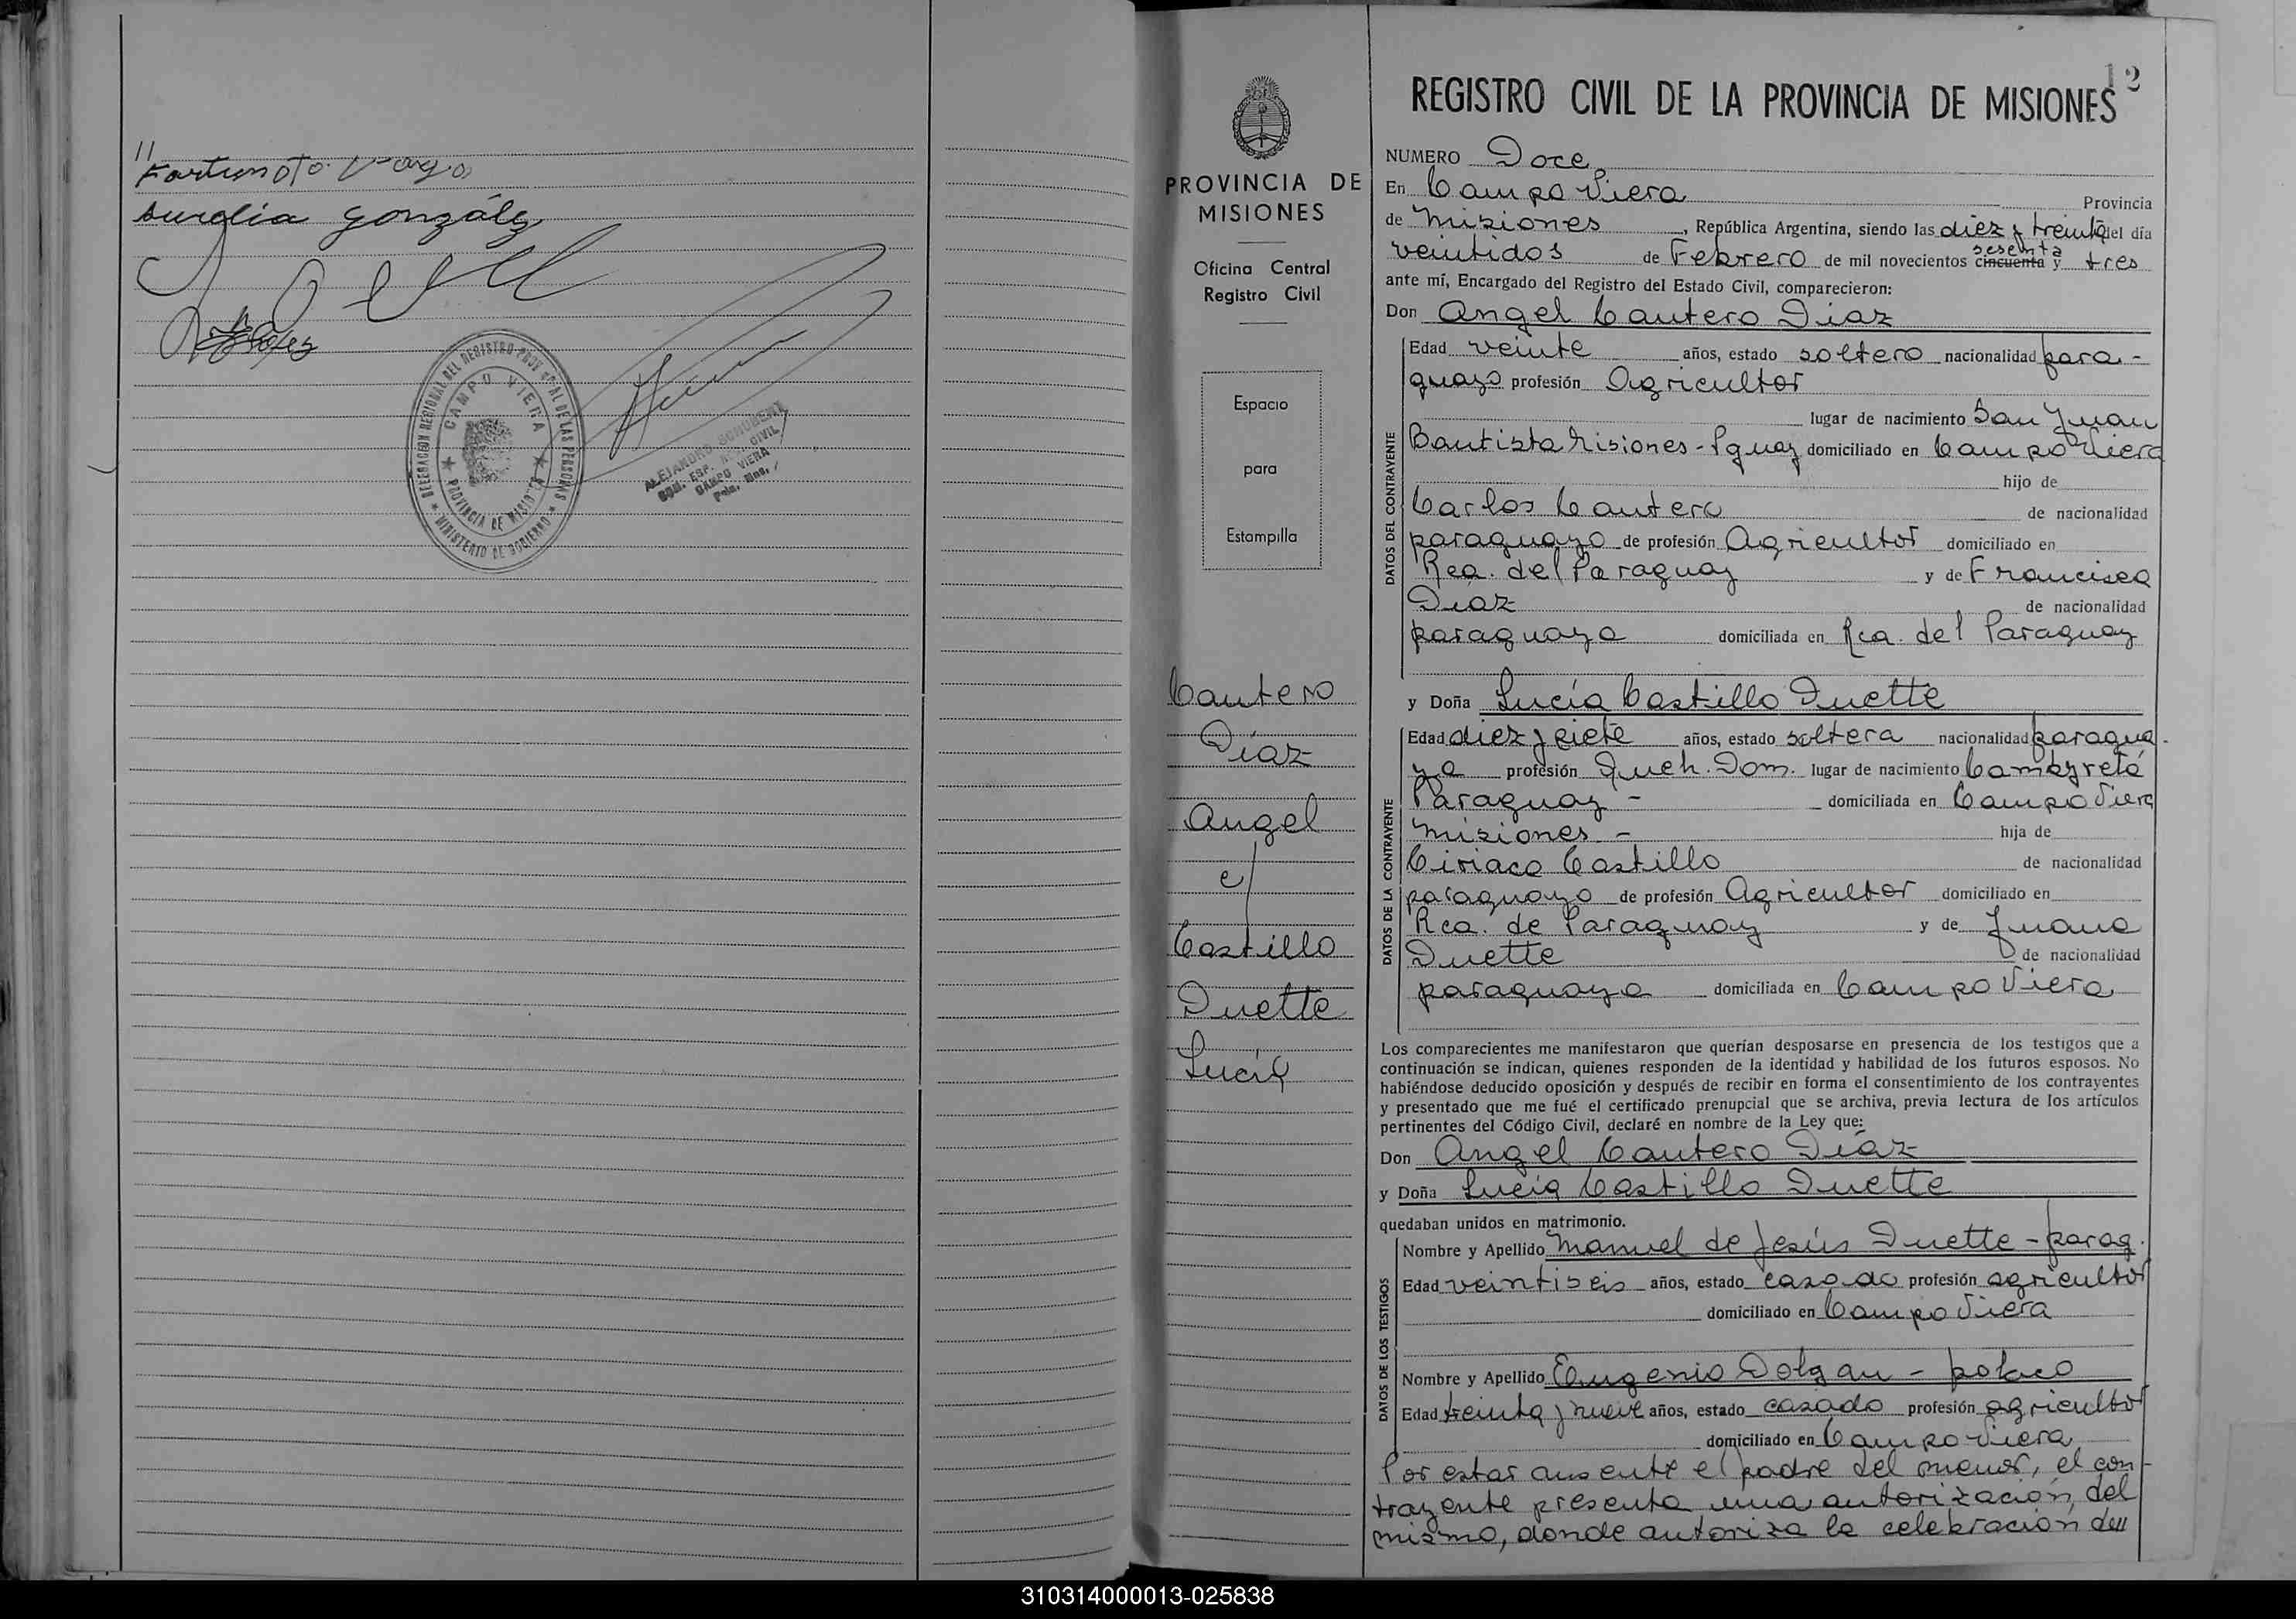 11
Aurelia González
DELEGACION REGIONAL DEL REGISTRO PROVINCIAL DE LAS PERSONAS
CAMPO VIERA
PROVINCIA DE MISIONES
MINISTERIO DE GOBIERNO
ALEJANDRO
CAMPO VIERA
PROVINCIA DE
MISIONES
Oficina Central
Registro Civil
Espacio
para
Estampilla
Cantero
Díaz
Angel
c/
Castillo
Duette
Lucía
12
REGISTRO CIVIL DE LA PROVINCIA DE MISIONES
NUMERO Doce
En Campo Viera Provincia
de Misiones, República Argentina, siendo las diez y treinta del día
veintidos de Febrero de mil novecientos cincuenta sesenta y tres
ante mí, Encargado del Registro del Estado Civil, comparecieron:
Don Angel Cantero Diaz
DATOS DEL CONTRAYENTE
Edad veinte años, estado soltero nacionalidad para-
guayo profesión Agricultor
lugar de nacimiento San Juan
Bautista Misiones - Pguay domiciliado en Campo Viera
hijo de
Carlos Cantero de nacionalidad
paraguayo de profesión Agricultor domiciliado en
Rca. del Paraguay y de Francisca
Diaz de nacionalidad
paraguaya domiciliada en Rca. del Paraguay
y Doña Lucía Castillo Duette
DATOS DE LA CONTRAYENTE
Edad diez y siete años, estado soltera nacionalidad paragua-
ya profesión Queh. Dom. lugar de nacimiento Camayretá
Paraguay - domiciliada en Campo Viera
Misiones - hija de
Ciriaco Castillo de nacionalidad
paraguayo de profesión Agricultor domiciliado en
Rca. de Paraguay y de Juana
Duette de nacionalidad
paraguaya domiciliada en Campo Viera
Los comparecientes me manifestaron que querían desposarse en presencia de los testigos que a
continuación se indican, quienes responden de la identidad y habilidad de los futuros esposos. No
habiéndose deducido oposición y después de recibir en forma el consentimiento de los contrayentes
y presentado que me fué el certificado prenupcial que se archiva, previa lectura de los artículos
pertinentes del Código Civil, declaré en nombre de la Ley que:
Don Angel Cantero Díaz
y Doña Lucía Castillo Duette
quedaban unidos en matrimonio.
DATOS DE LOS TESTIGOS
Nombre y Apellido Manuel de Jesús Duette - parag.
Edad veintiseis años, estado casado profesión agricultor
domiciliado en Campo Viera
Nombre y Apellido Eugenio Dolgan - polaco
Edad treinta y nueve años, estado casado profesión agricultor
domiciliado en Campo Viera
Por estar ausente el padre del menor, el con-
trayente presenta una autorización del
mismo, donde autoriza la celebración del
310314000013-025838